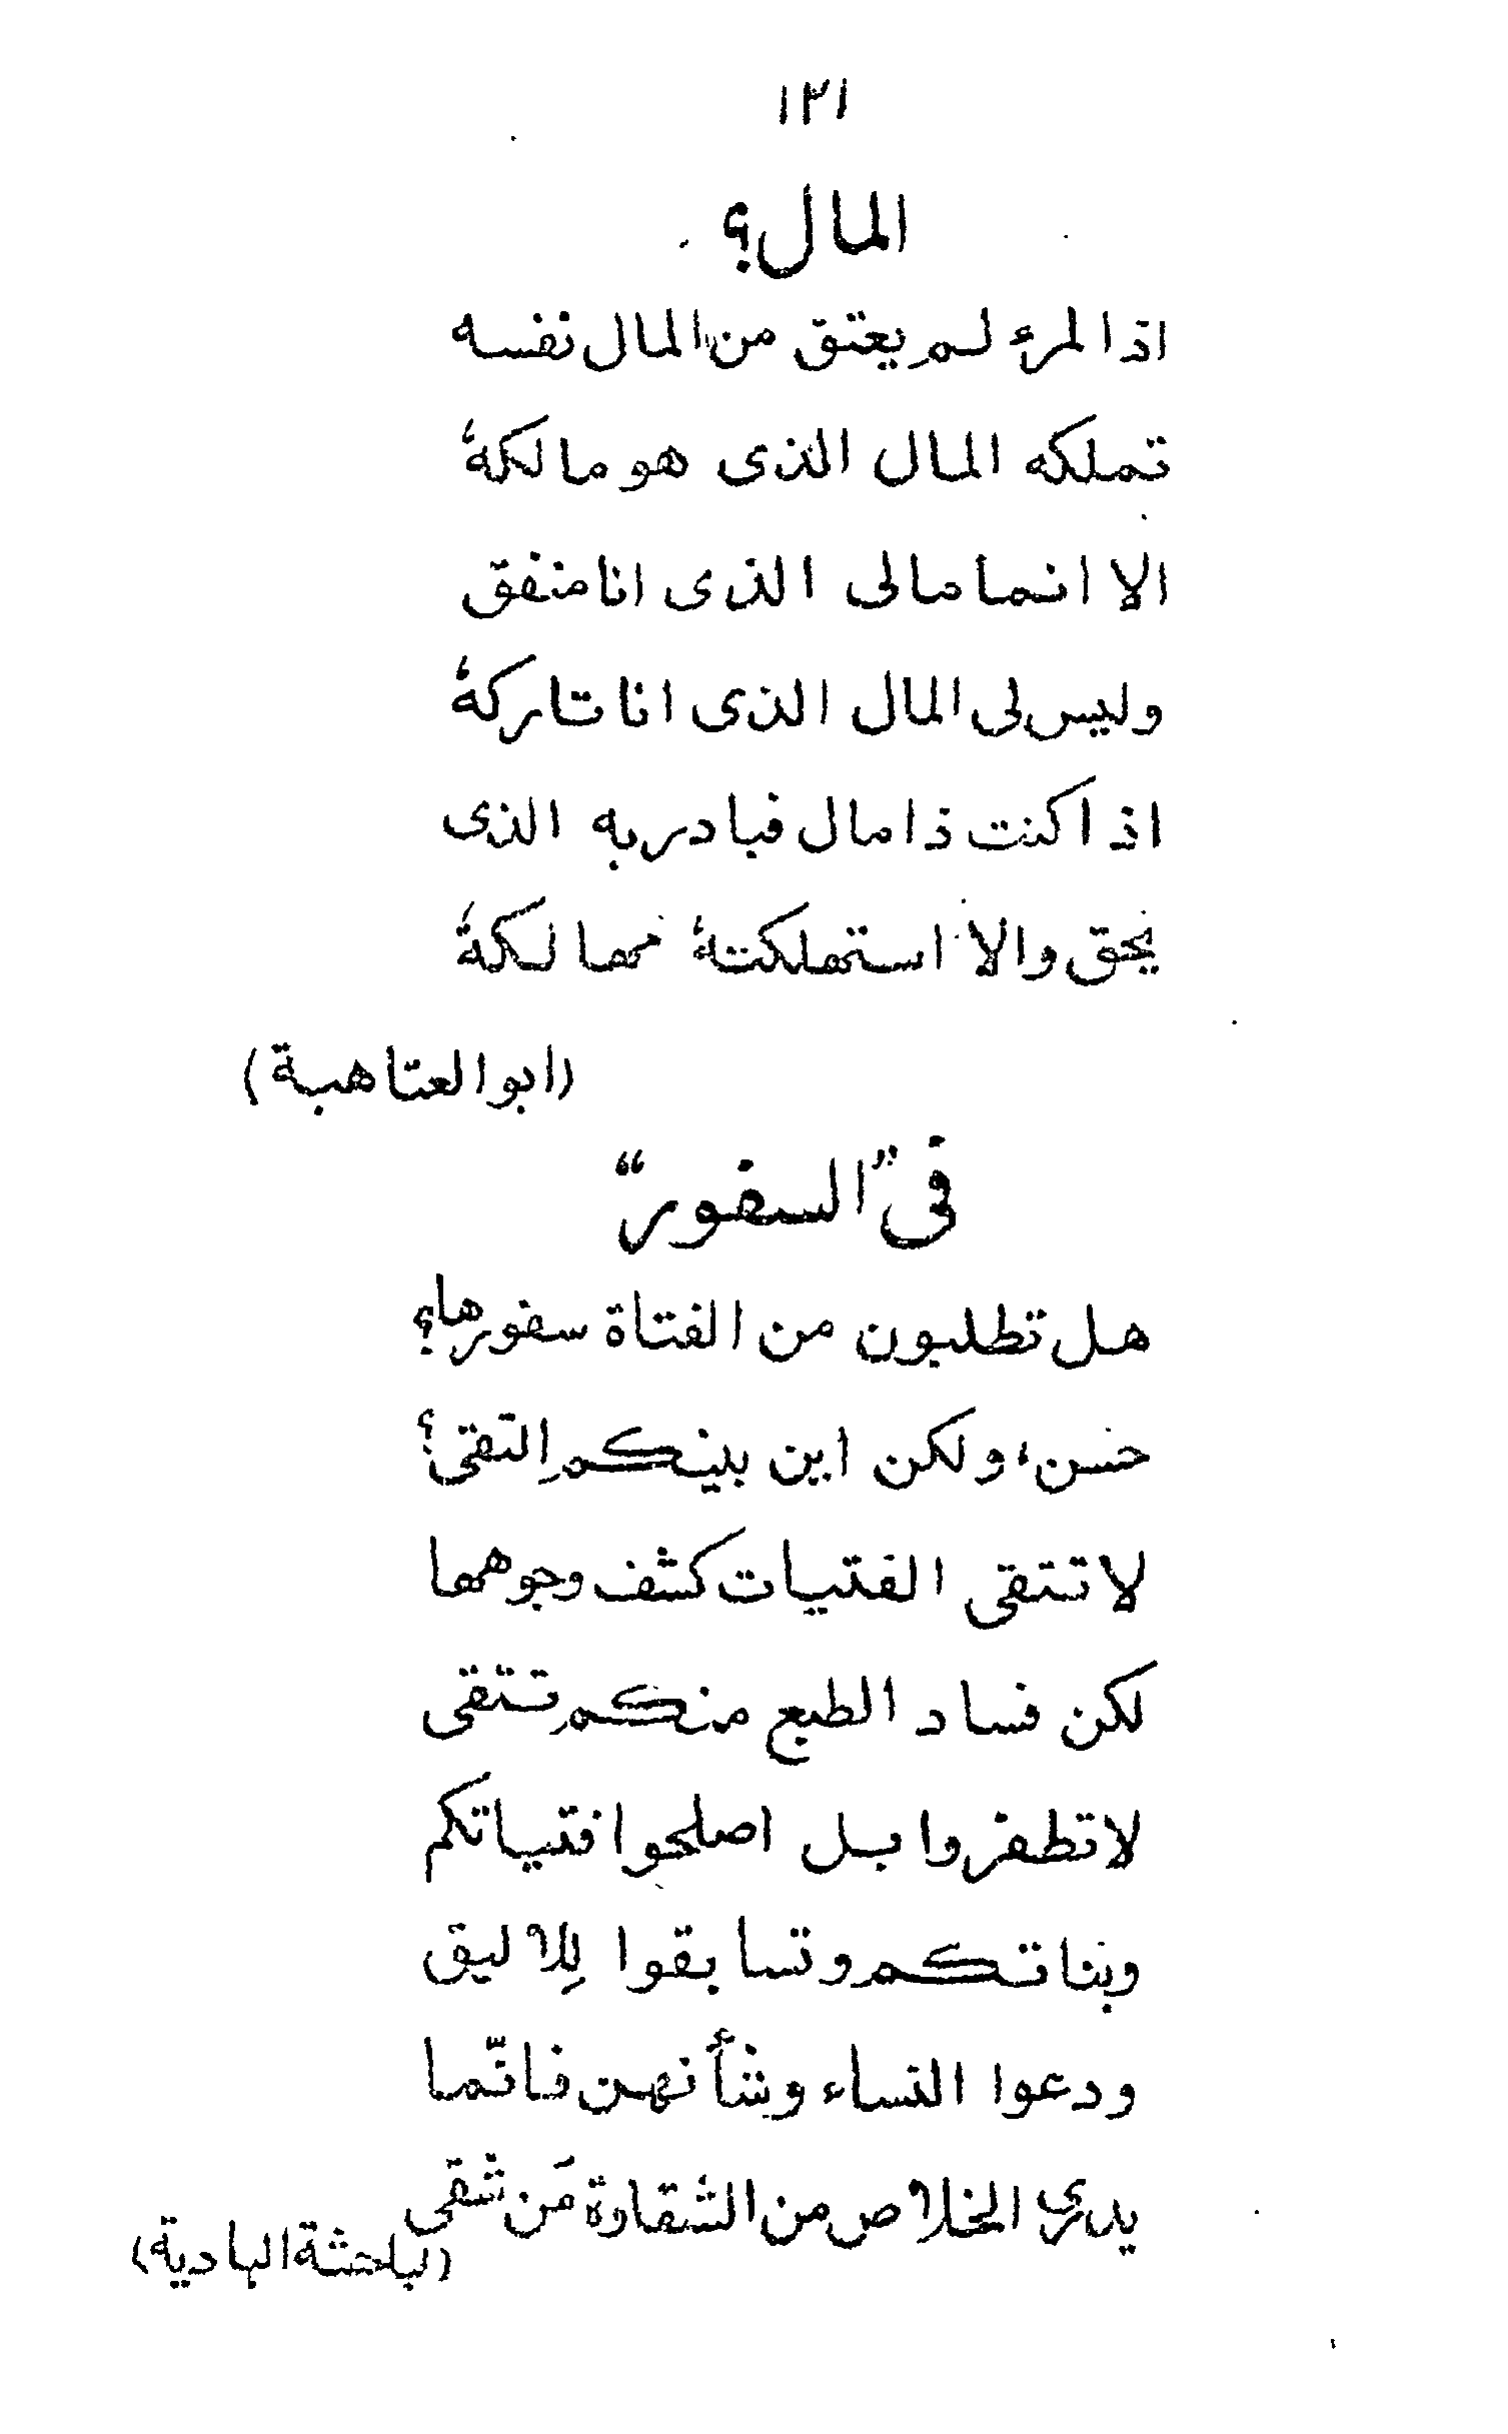 ١٢١
المال؟
اذا المرء لم يعتق من المال نفسه
تملكه المال الذى هو مالكهُ
الا انما مالى الذى انا منفق
وليس لى المال الذى انا تاركهُ
اذا كنت ذا مال فبادر به الذى
يحق والا استهلكتهُ مهالكهُ
(ابو العتاهية)
فى ”السفور“
هل تطلبون من الفتاة سفورها؟
حسن، ولكن اين بينكم التقى؟
لا تتقى الفتيات كشف وجوهها
لكن فساد الطبع منكم تتقى
لا تطفروا بل اصلحوا فتياتكم
وبناتكم وتسابقوا لِلاليق
ودعوا النساء وشأنهن فانّما
يدرى الخلاص من الشقاوة مَن شقى
(لباحثة البادية)